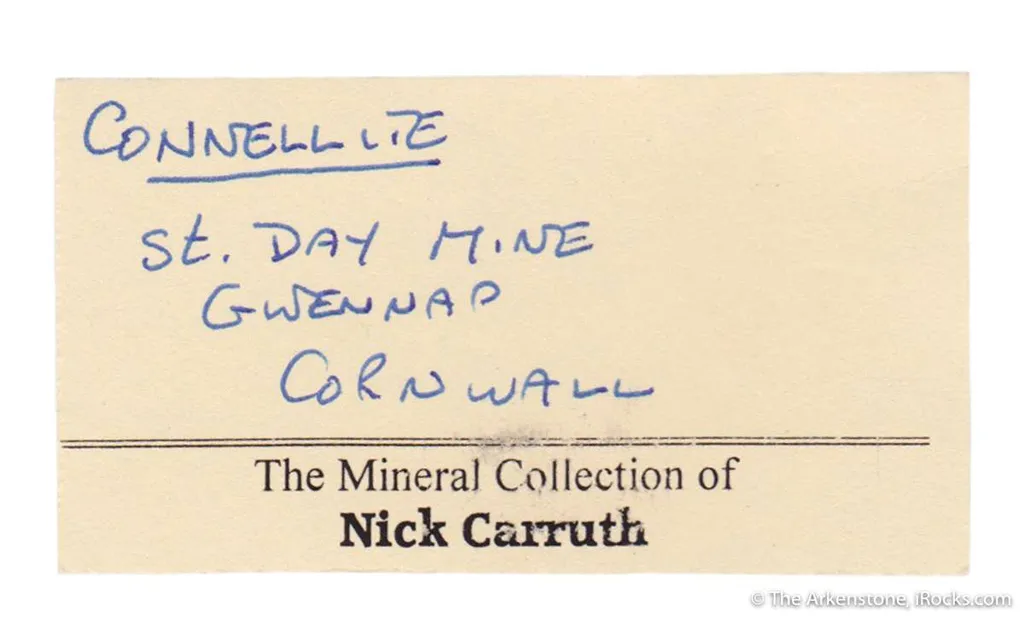 CONNELLITE
St. DAY MINE
GWENNAP
CORNWALL
The Mineral Collection of
Nick Carruth
© The Arkenstone, iRocks.com